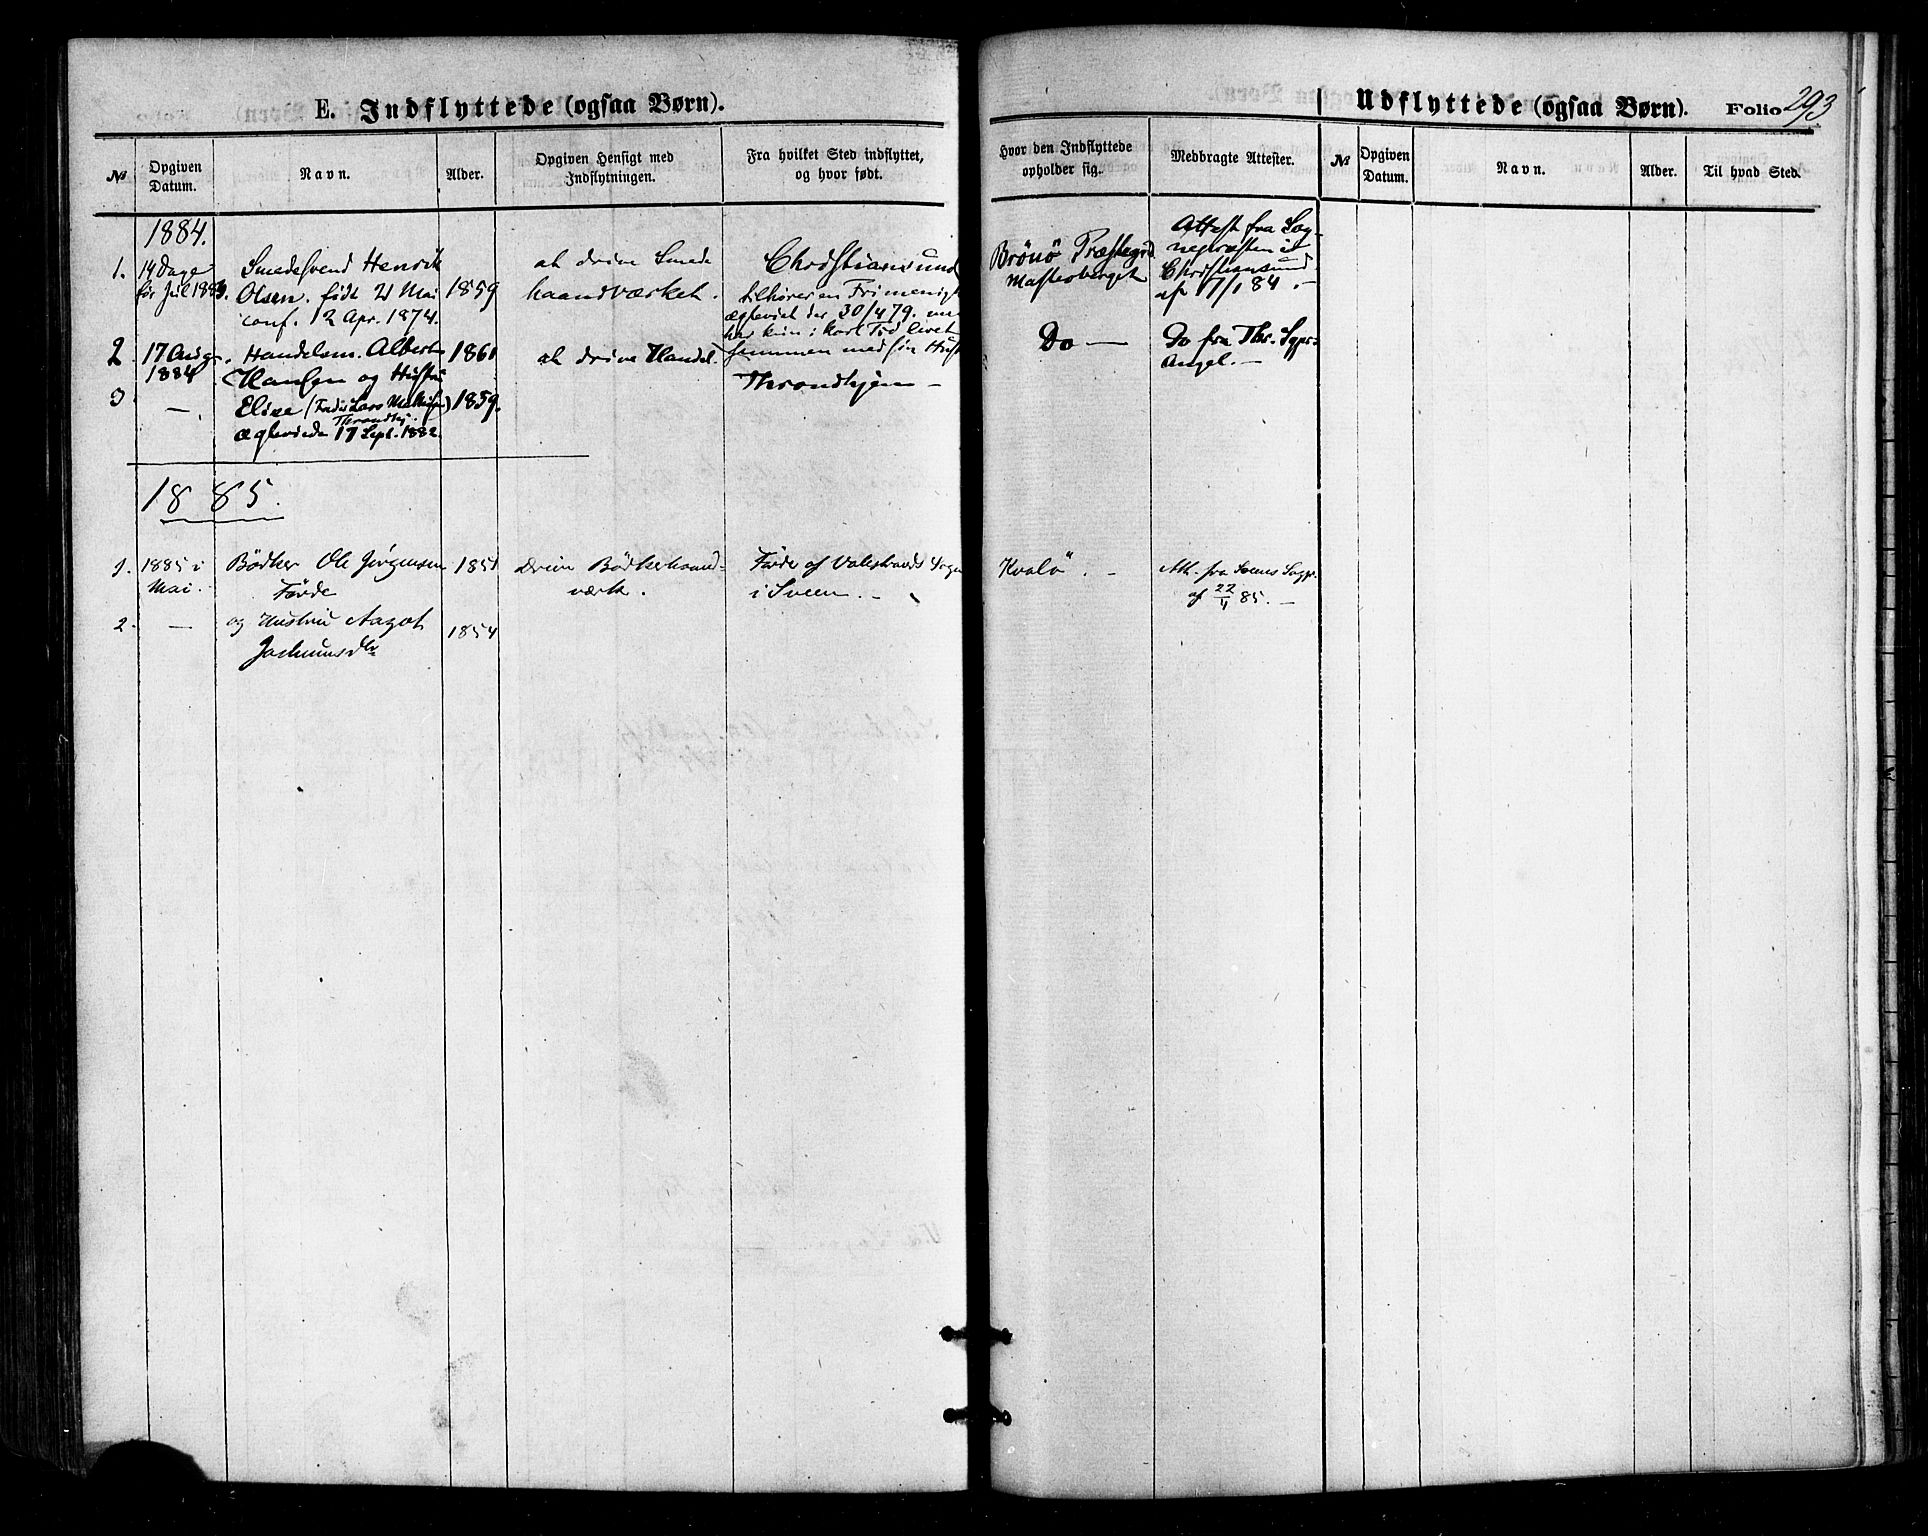 E. Indflyttede (ogsaa Børn).
№
Opgiven Datum.
Navn.
Alder.
Opgiven Hensigt med Indflytningen.
Fra hvilket Sted indflyttet, og hvor født.
1884.
1.
14 Dage
før Jul 1883.
Smedesvend Henrik
Olsen. født 21 Mai
conf. 12 Apr. 1874.
1859
at drive Smede
haandværket.
Christiansund
tilhører en Frimenigh
ægteviet der 30/4 79. men
har kun i kort Tid levet
sammen med sin Hust
2
17 Aug.
1884
Handelsm. Albert
Hansen og Hustru
1861
at drive Handel.
Throndhjem —
3
—
Elise (Fader Lars
Throndhj.
ægteviede 17 Sept. 1882.
1859.
1885.
1.
1885 i
Mai.
Bödker Ole Jörgensen
Förde
1851
Drive Bödkerhaand-
værk.
Förde af Valestrands Sogn
i Sveen. —
2.
—
og Hustru Aagot
1854
Udflyttede (ogsaa Børn).
Folio 293
Hvor den Indflyttede opholder sig.
Medbragte Attester.
№
Opgiven Datum.
Navn.
Alder.
Til hvad Sted.
Brönö Præstegrd
Attest fra Sog-
nepræsten i
Christiansund
af 17/1 84. —
Do —
Do fra Thr. Sgpr.
Angel. —
Kvalö —
Att. fra Sveens Sogpr.
af 22/4 85. —